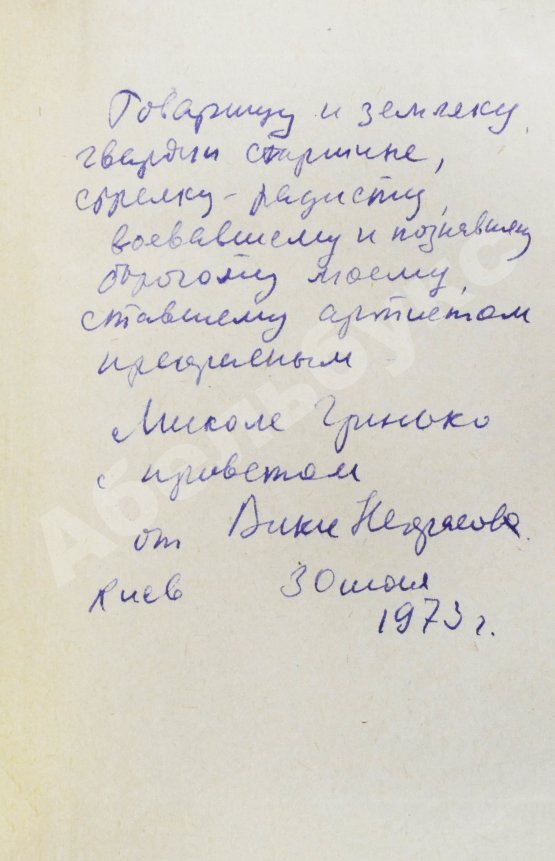 Товарищу и земляку,
гвардии старшине,
стрелку-радисту,
воевавшему и познавшему
дорогому моему,
ставшему артистом
прекрасным
Миколе Гринько
с приветом
от Вики Некрасова.
Киев 30 июля
1973 г.
Абельбукс